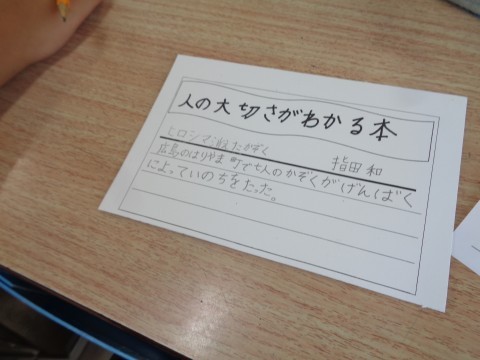 人の大切さがわかる本
ヒロシマ消えたかぞく
指田和
広島のはりやま町で七人のかぞくがげんばく
によっていのちをたった。